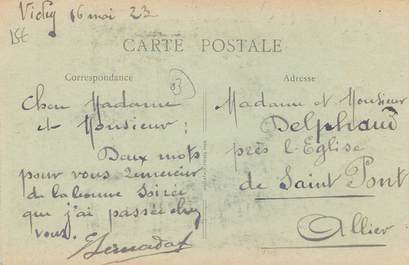 Vichy 16 mai 23
CARTE POSTALE
Correspondance
Adresse
03
Cher Madame
et Monsieur :
Deux mots
pour vous remercier
de la bonne soirée
que j'ai passée chez
vous.
Madame et Monsieur
Delphaud
près l'Eglise
de Saint Pont
Allier